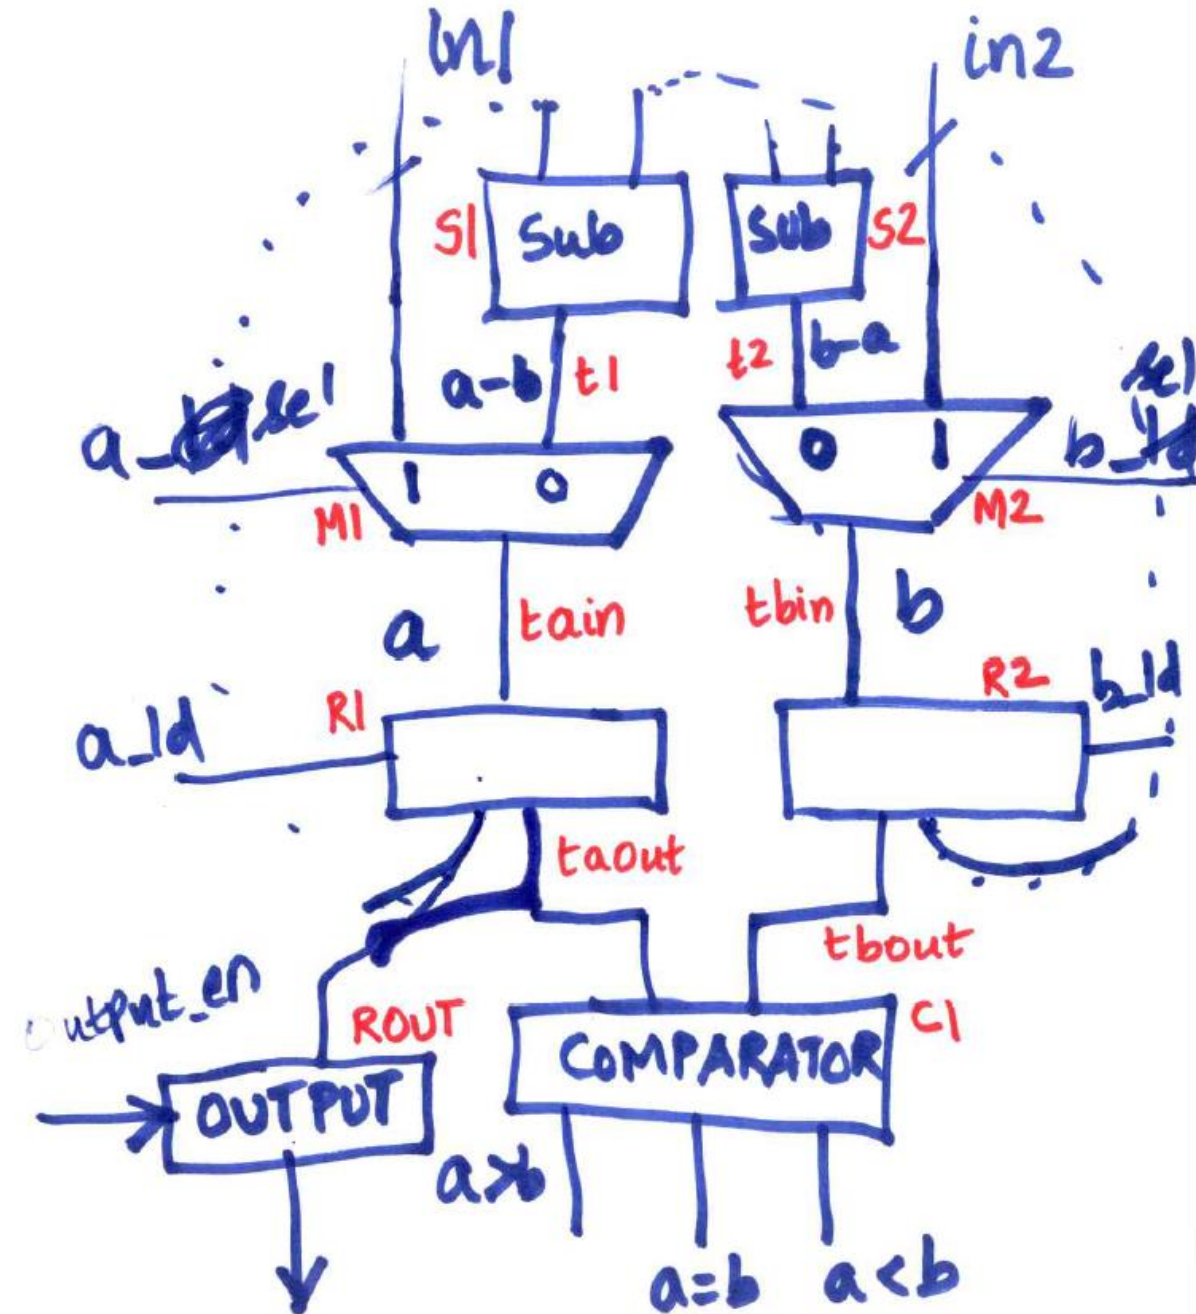 in1 in2
S1 Sub Sub S2
a-b t1 t2 b-a
a_sel sel
b_ld
1 0 0 1
M1 M2
a tain tbin b
a_ld R1 R2 b_ld
taout
tbout
output_en
ROUT C1
OUTPUT COMPARATOR
a>b
a=b a<b